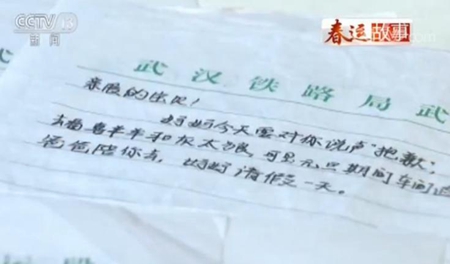 CCTV 13
新闻
春运故事
武汉铁路局武
亲爱的宝贝!
妈妈今天要对你说声"抱歉",
喜羊羊和灰太狼,可是元旦期间车间
爸爸陪你去,妈妈请假一天。